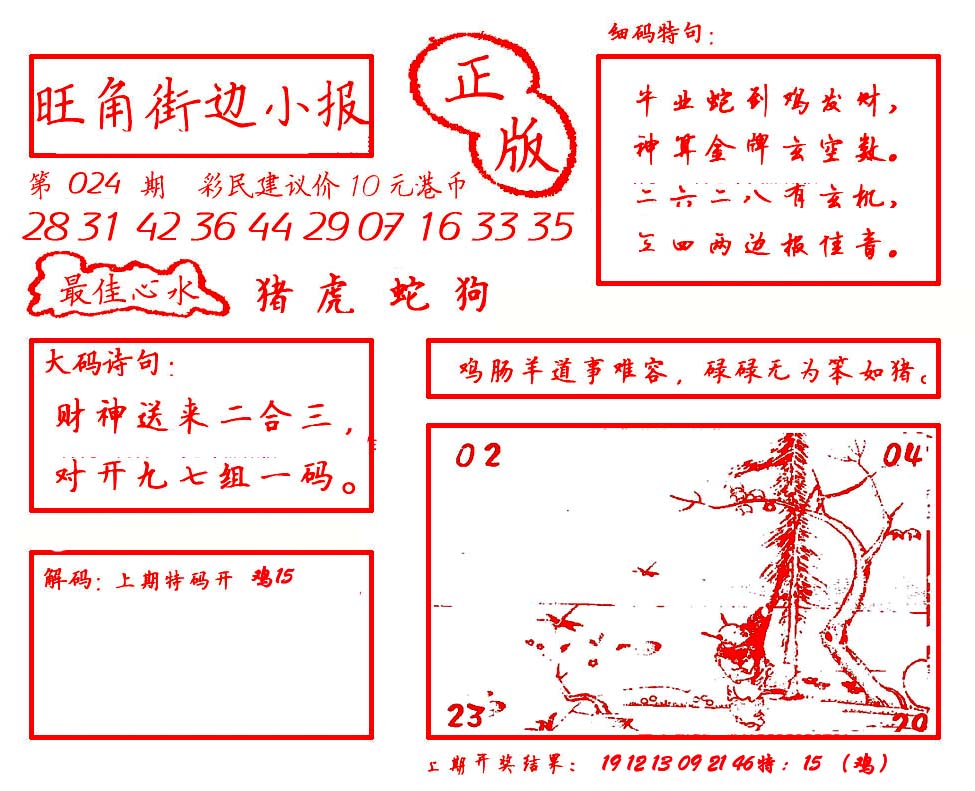 细码特句：
旺角街边小报
正
版
牛业蛇到鸡发财，
神算金牌玄空数。
二六二八有玄机，
四两边报佳音。
第 024 期 彩民建议价 10 元港币
28 31 42 36 44 29 07 16 33 35
最佳心水 猪 虎 蛇 狗
大码诗句：
财神送来二合三，
对开九七组一码。
鸡肠羊道事难容，碌碌无为笨如猪。
02 04
23 20
解码：上期特码开 鸡15
上期开奖结果： 19 12 13 09 21 46特：15 （鸡）